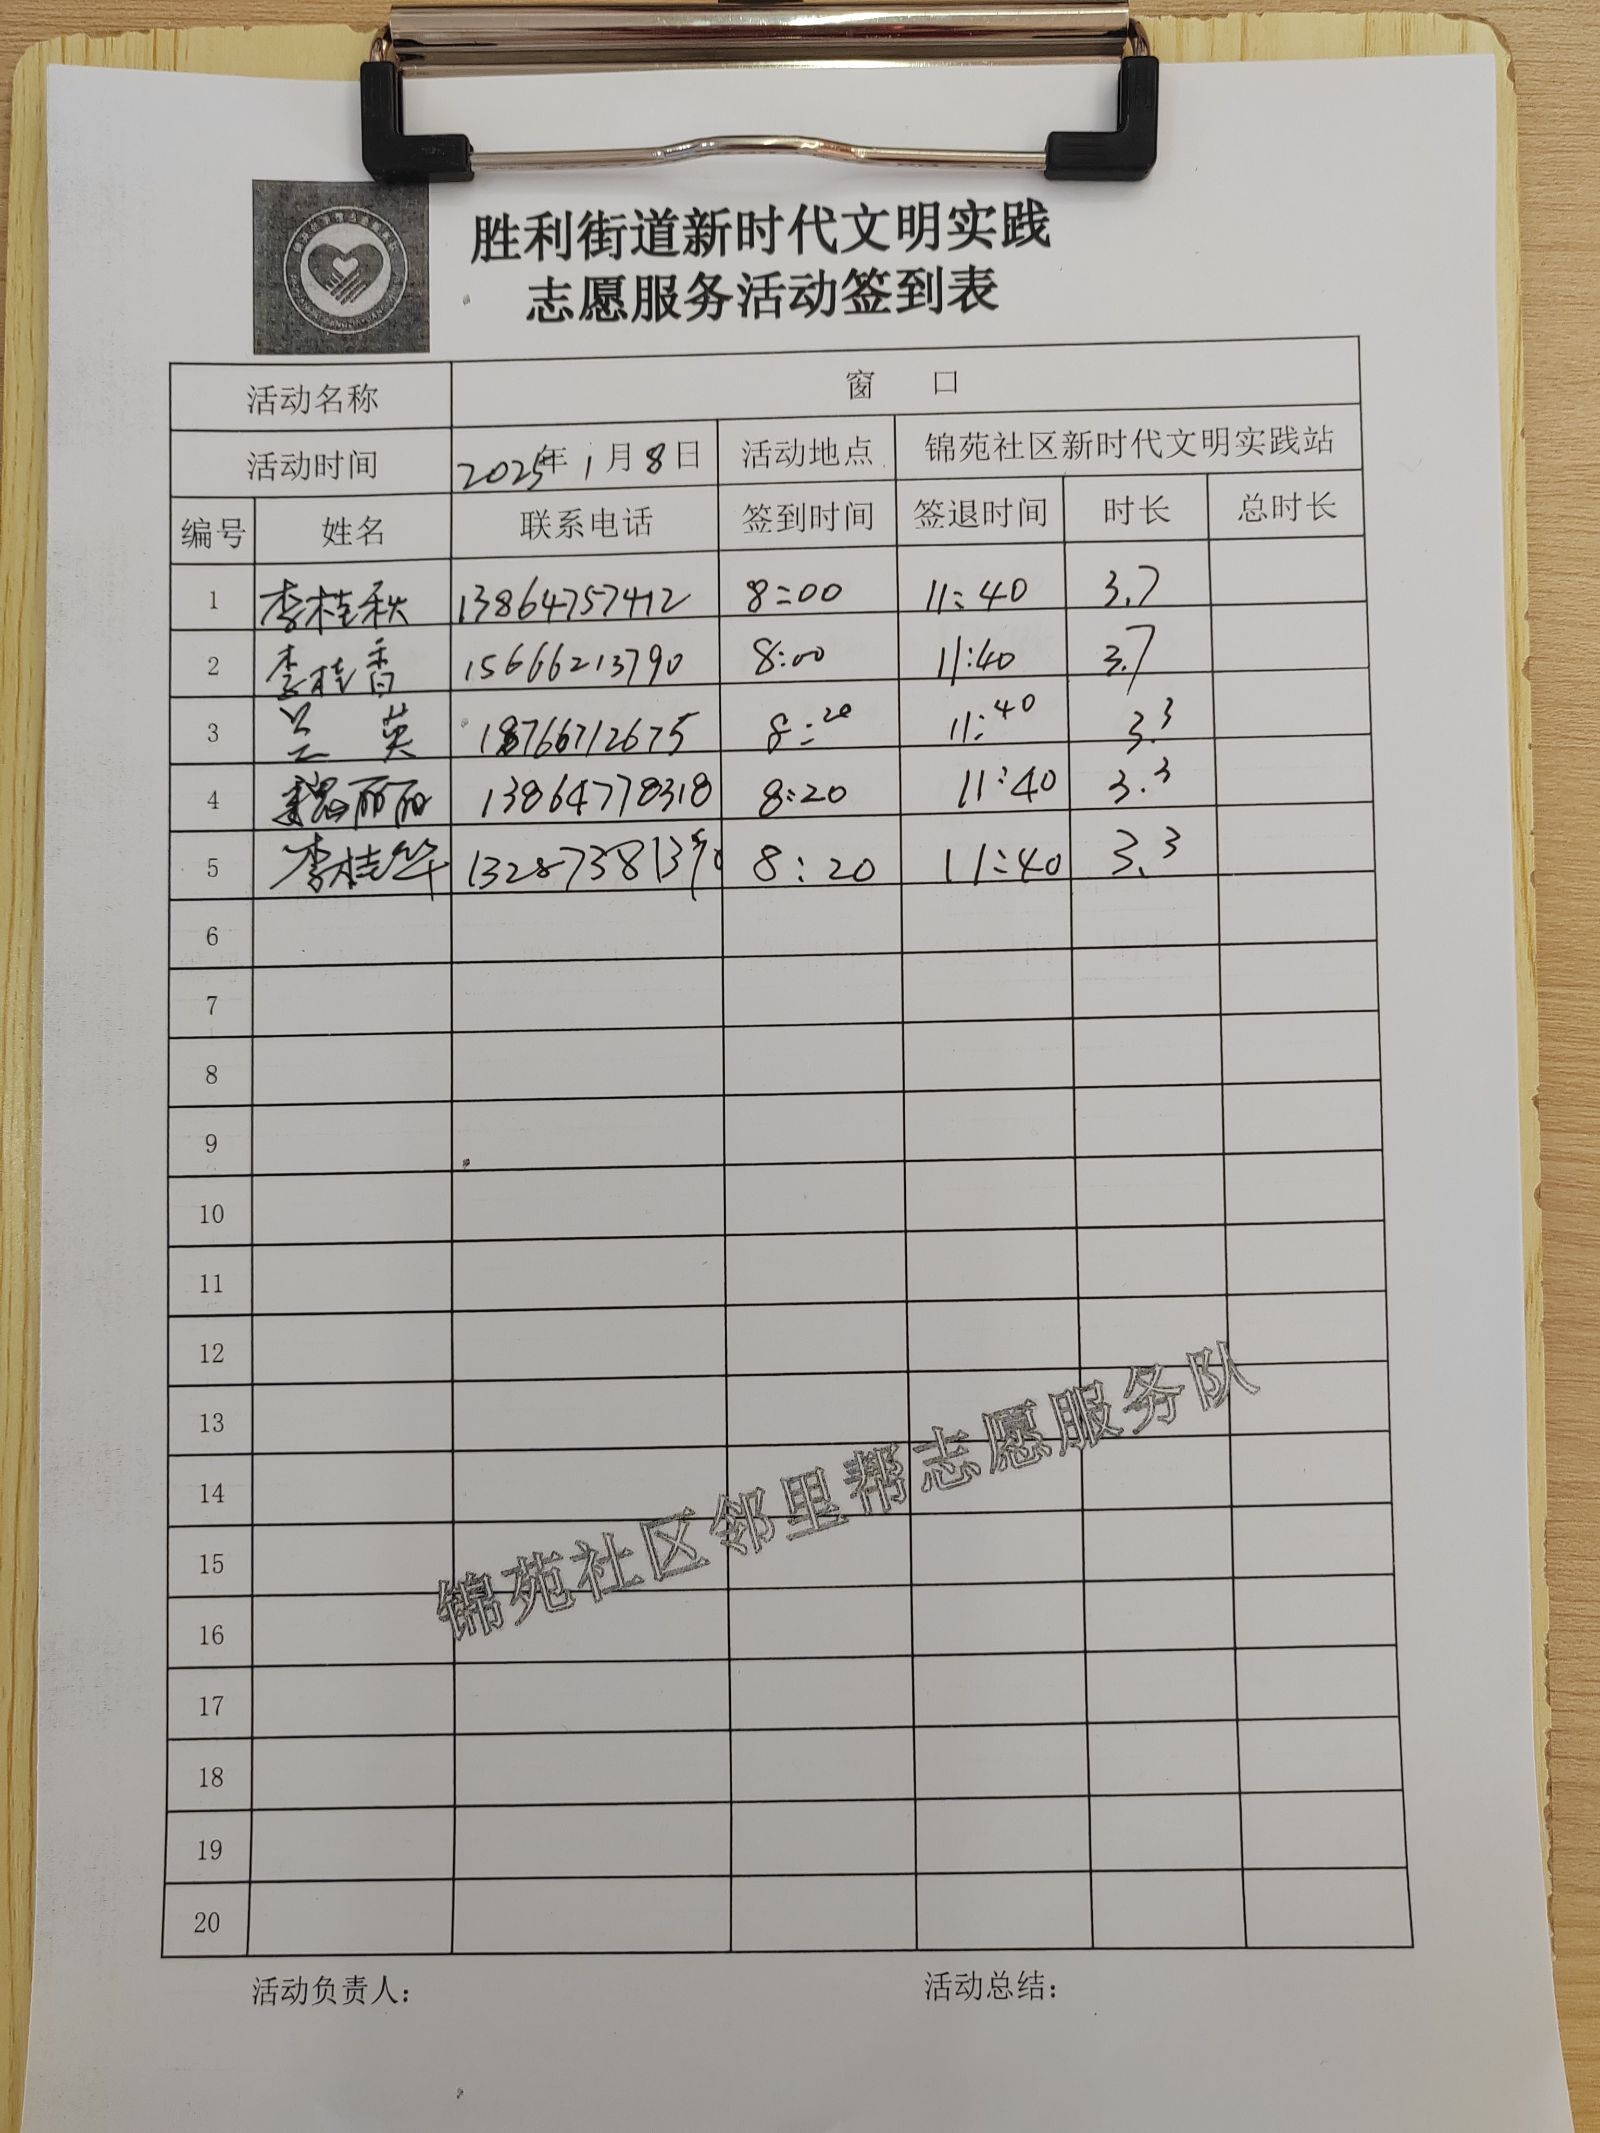 胜利街道新时代文明实践
志愿服务活动签到表
活动名称 窗 口
活动时间 2025年1月8日 活动地点 锦苑社区新时代文明实践站
编号 姓名 联系电话 签到时间 签退时间 时长 总时长
1 李桂秋 13864757412 8:00 11:40 3.7
2 李桂香 15666213790 8:00 11:40 3.7
3 兰英 18766712675 8:20 11:40 3.3
4 魏丽丽 13864778318 8:20 11:40 3.3
5 李桂华 8:20 11:40 3.3
6
7
8
9
10
11
12
13
14
15
16
17
18
19
20
锦苑社区邻里帮志愿服务队
活动负责人: 活动总结: